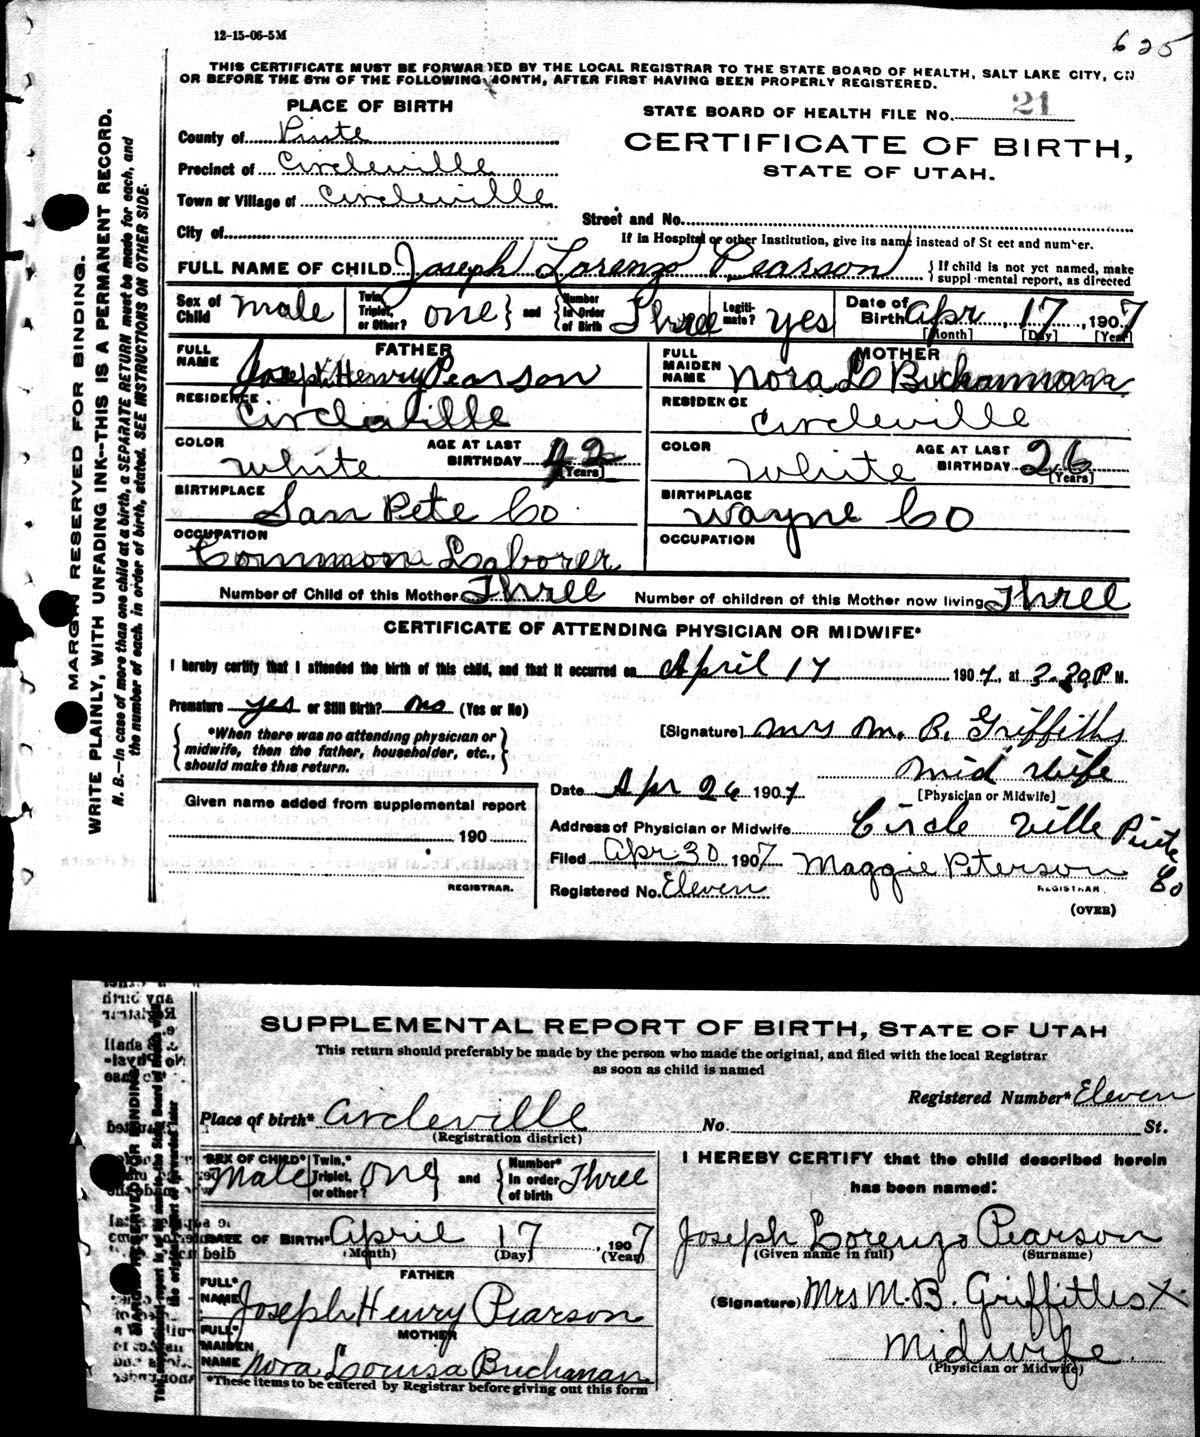 12-15-06-5M
625
THIS CERTIFICATE MUST BE FORWARDED BY THE LOCAL REGISTRAR TO THE STATE BOARD OF HEALTH, SALT LAKE CITY, ON
OR BEFORE THE 5TH OF THE FOLLOWING MONTH, AFTER FIRST HAVING BEEN PROPERLY REGISTERED.
MARGIN RESERVED FOR BINDING.
WRITE PLAINLY, WITH UNFADING INK--THIS IS A PERMANENT RECORD.
N. B.--In case of more than one child at a birth, a SEPARATE RETURN must be made for each, and
the number of each, in order of birth, stated. SEE INSTRUCTIONS ON OTHER SIDE.
PLACE OF BIRTH
STATE BOARD OF HEALTH FILE NO. 21
County of Piute
CERTIFICATE OF BIRTH,
Precinct of Circleville
STATE OF UTAH.
Town or Village of Circleville
Street and No.
City of
If in Hospital or other Institution, give its name instead of Street and number.
FULL NAME OF CHILD Joseph Lorenzo Pearson { If child is not yet named, make supplemental report, as directed
Sex of Child Male Twin, Triplet, or Other? one } and { Number In Order of Birth Three Legitimate? yes Date of Birth Apr 17, 1907
[Month] [Day] [Year]
FATHER MOTHER
FULL NAME Joseph Henry Pearson FULL MAIDEN NAME Nora L Buchannan
RESIDENCE Circleville RESIDENCE Circleville
COLOR White AGE AT LAST BIRTHDAY 42 [Years] COLOR White AGE AT LAST BIRTHDAY 26 [Years]
BIRTHPLACE San Pete Co. BIRTHPLACE Wayne Co
OCCUPATION Common Laborer OCCUPATION
Number of Child of this Mother Three Number of children of this Mother now living Three
CERTIFICATE OF ATTENDING PHYSICIAN OR MIDWIFE*
I hereby certify that I attended the birth of this child, and that it occurred on April 17 1907, at P M.
Premature yes or Still Birth? no (Yes or No)
[Signature] Mrs M. B. Griffiths
{ *When there was no attending physician or midwife, then the father, householder, etc., should make this return. }
Mid wife
[Physician or Midwife]
Date Apr 26 1907
Given name added from supplemental report
Address of Physician or Midwife Circle ville Piute Co
190
Filed Apr. 30 1907 Maggie Peterson
REGISTRAR. REGISTRAR.
Registered No. Eleven
(OVER)
SUPPLEMENTAL REPORT OF BIRTH, STATE OF UTAH
This return should preferably be made by the person who made the original, and filed with the local Registrar
as soon as child is named
Registered Number* Eleven
Place of birth* Circleville No. St.
(Registration district)
SEX OF CHILD* Male Twin,* Triplet, or other? One } and { Number* In order of birth Three
I HEREBY CERTIFY that the child described herein
has been named:
DATE OF BIRTH* April 17, 1907
(Month) (Day) (Year)
Joseph Lorenzo Pearson
(Given name in full) (Surname)
FATHER
FULL* NAME Joseph Henry Pearson
(Signature) Mrs M. B. Griffiths X
MOTHER
Midwife.
(Physician or Midwife)
FULL* MAIDEN NAME Nora Louisa Buchanan
*These items to be entered by Registrar before giving out this form